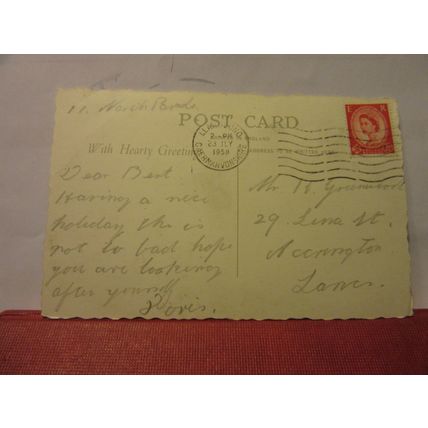 11. North Parade
POST CARD
With Hearty Greetings
ADDRESS TO BE WRITTEN
2- PM
23 JLY
1958
CAERNARVONSHIRE
Dear Bert
Having a nice
holiday she is
not to bad hope
you are looking
after yourself
Doris.
Mr H. Greenwood
29. Lima St.
Accrington
Lancs.